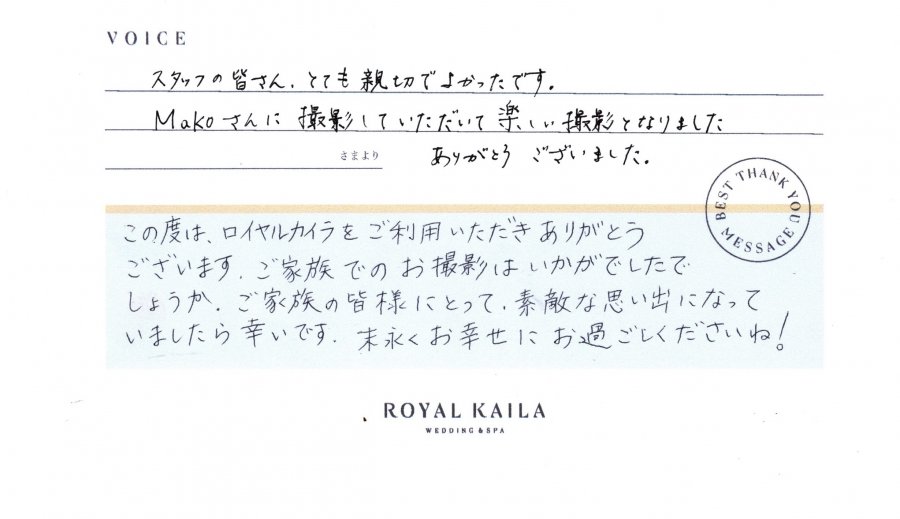 VOICE
スタッフの皆さん、とても親切でよかったです。
Makoさんに撮影していただいて楽しい撮影となりました
さまより ありがとうございました。
BEST THANK YOU MESSAGE
この度は、ロイヤルカイラをご利用いただきありがとう
ございます。ご家族でのお撮影はいかがでしたで
しょうか。ご家族の皆様にとって、素敵な思い出になって
いましたら幸いです。末永くお幸せにお過ごしくださいね!
ROYAL KAILA
WEDDING & SPA